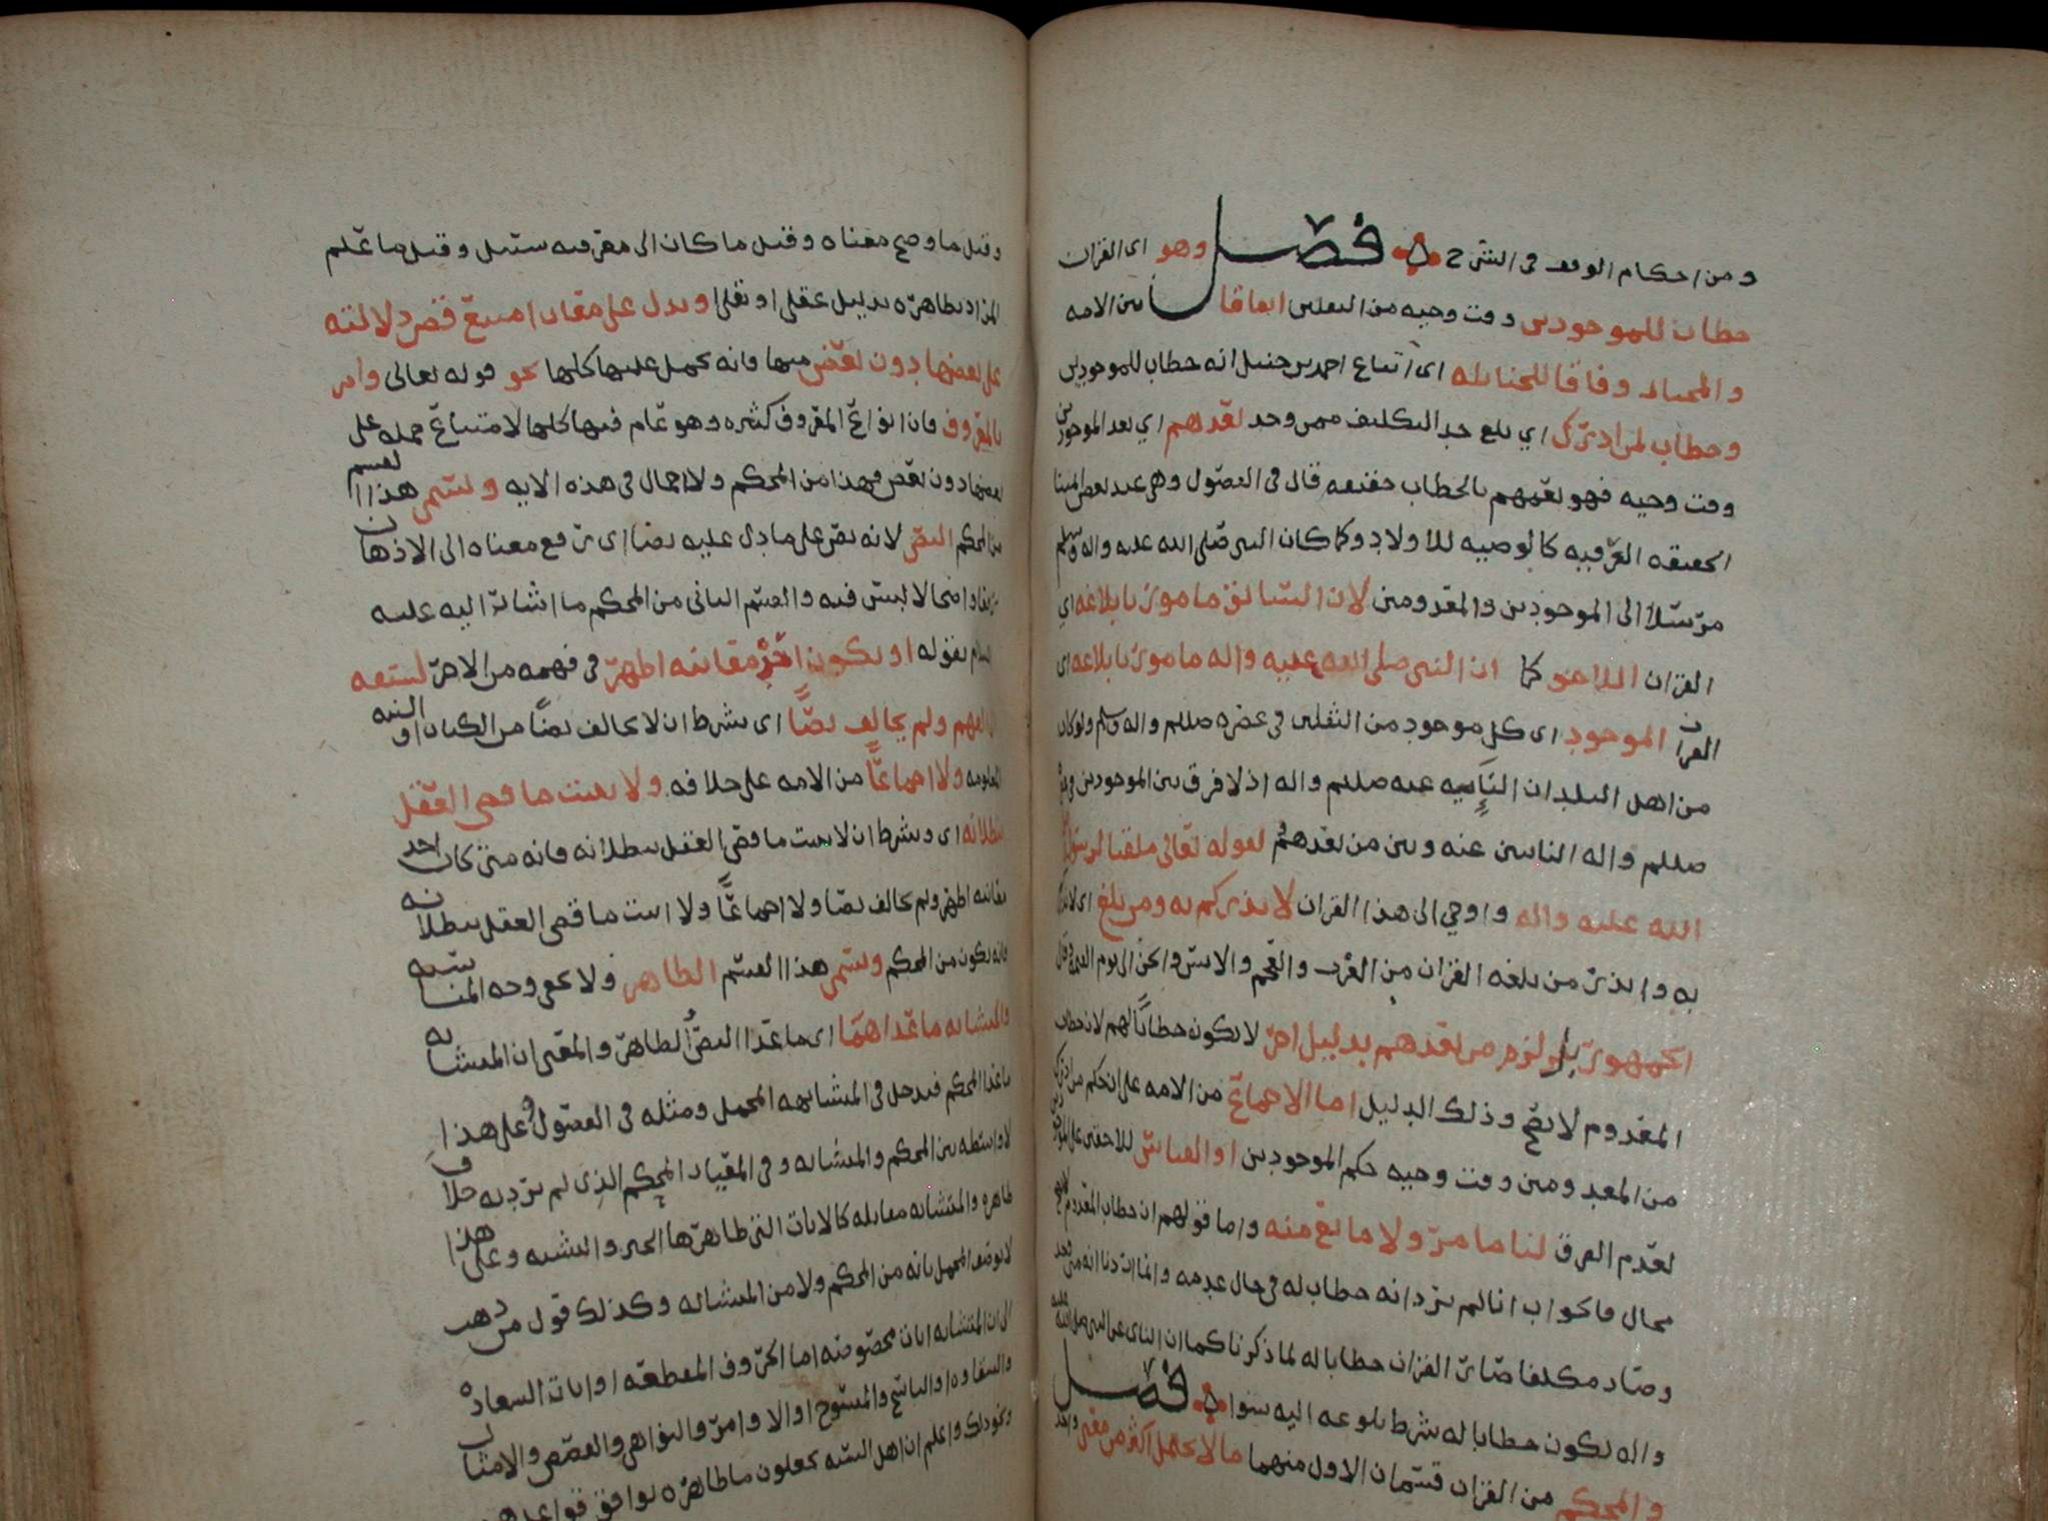 ومن احكام الوقف في الشرح ۞ فصل وهو اى القران
خطاب للموجودين وقت وحيه من الثقلين اتفاقا بين الامه
والمختار وفاقا للحنابله اى اتباع احمد بن حنبل انه خطاب للموجودين
وخطاب لمن ادرك اي بلغ حد التكليف ممن وجد بعدهم اي بعد الموجودين
وقت وحيه فهو يعمهم بالخطاب حقيقه قال في الفصول وهي عند بعض ائمتنا
الحقيقه العرفيه كالوصيه للاولاد وكما كان النبي صلى الله عليه واله وسلم
مرسلا الى الموجودين والمعدومين لان السابق مامور بابلاغه اي
القران اللاحق كما ان النبي صلى الله عليه واله مامور بابلاغه اى
القران الموجود اى كل موجود من الثقلين في عصره صللم واله وسلم ولو كان
من اهل البلدان الناييه عنه صللم واله اذ لا فرق بين الموجودين في
صللم واله النائين عنه وبين من بعدهم لقوله تعالى ملقنا لرسوله
الله عليه واله واوحي الى هذا القران لانذركم به ومن بلغ اى لانذركم
به وانذر من بلغه القران من العرب والعجم والانس والجن الى يوم القيمه وقال
الجمهور بل لزم من بعدهم بدليل اخر لا يكون خطابا لهم لان خطاب
المعدوم لا يصح وذلك الدليل اما الاجماع من الامه على ان حكم من ادرك
من المعدومين وقت وحيه حكم الموجودين او القياس للاحقين على الموجودين
لعدم الفرق لنا ما مر ولا مانع منه واما قولهم ان خطاب المعدوم
محال فالجواب انا لم نرد انه خطاب له في حال عدمه وانما اردنا انه متى وجد
وصار مكلفا صار القران خطابا له لما ذكرنا كما ان النائ عن النبي صلى الله عليه
واله يكون خطابا له بشرط بلوغه اليه سوا ۞ فصل
والمحكم من القران قسمان الاول منهما ما لا يحتمل اكثر من معنى واحد
وقيل ما وضح معناه وقيل ما كان الى معرفته سبيل وقيل ما علم
المراد بظاهره بدليل عقلي او نقلي او يدل على معان امتنع قصر دلالته
على بعضها دون بعض منها فانه يحمل عليها كلها نحو قوله تعالى وامر
بالمعروف فان انواع المعروف كثيره وهو عام فيها كلها لامتناع حمله على
بعضها دون بعض فهذا من المحكم ولا اجمال في هذه الايه ويسمى هذا القسم
من المحكم النص لانه نص على ما دل عليه نصا اى رفع معناه الى الاذهان
رفعا واضحا لا لبس فيه والقسم الثاني من المحكم ما اشار اليه عليه
السلام بقوله او يكون احد معانيه اظهر في فهمه من الاخر لسبقه
الى الفهم ولم يخالف نصا اى بشرط ان لا يخالف نصا من الكتاب او السنه
المعلومه ولا اجماعا من الامه على خلافه ولا يثبت ما قضى العقل
ببطلانه اى وبشرط ان لا يثبت ما قضى العقل ببطلانه فانه متى كان احد
معانيه اظهر ولم يخالف نصا ولا اجماعا ولا اثبت ما قضى العقل ببطلانه
فانه يكون من المحكم ويسمى هذا القسم الظاهر ولا يخفى وجه المناسبه
والمتشابه ما عداهما اى ما عدا النص والظاهر والمعنى ان المتشابه
ما عدا المحكم فيدخل في المتشابه المجمل ومثله في الفصول وعلى هذا
لا واسطه بين المحكم والمتشابه وفي المعيار المحكم الذى لم يرد به خلاف
ظاهره والمتشابه مقابله كالايات التي ظاهرها الجبر والتشبيه وعلى هذا
لا يوصف المجمل بانه من المحكم ولا من المتشابه وكذلك قول من ذهب
الى ان المتشابه ايات مخصوصه اما الحروف المقطعه او ايات السعاده
والشقاوه او الناسخ والمنسوخ او الاوامر والنواهي والقصص والامثال
ونحو ذلك واعلم ان اهل السنه يجعلون ما ظاهره يوافق قواعدهم